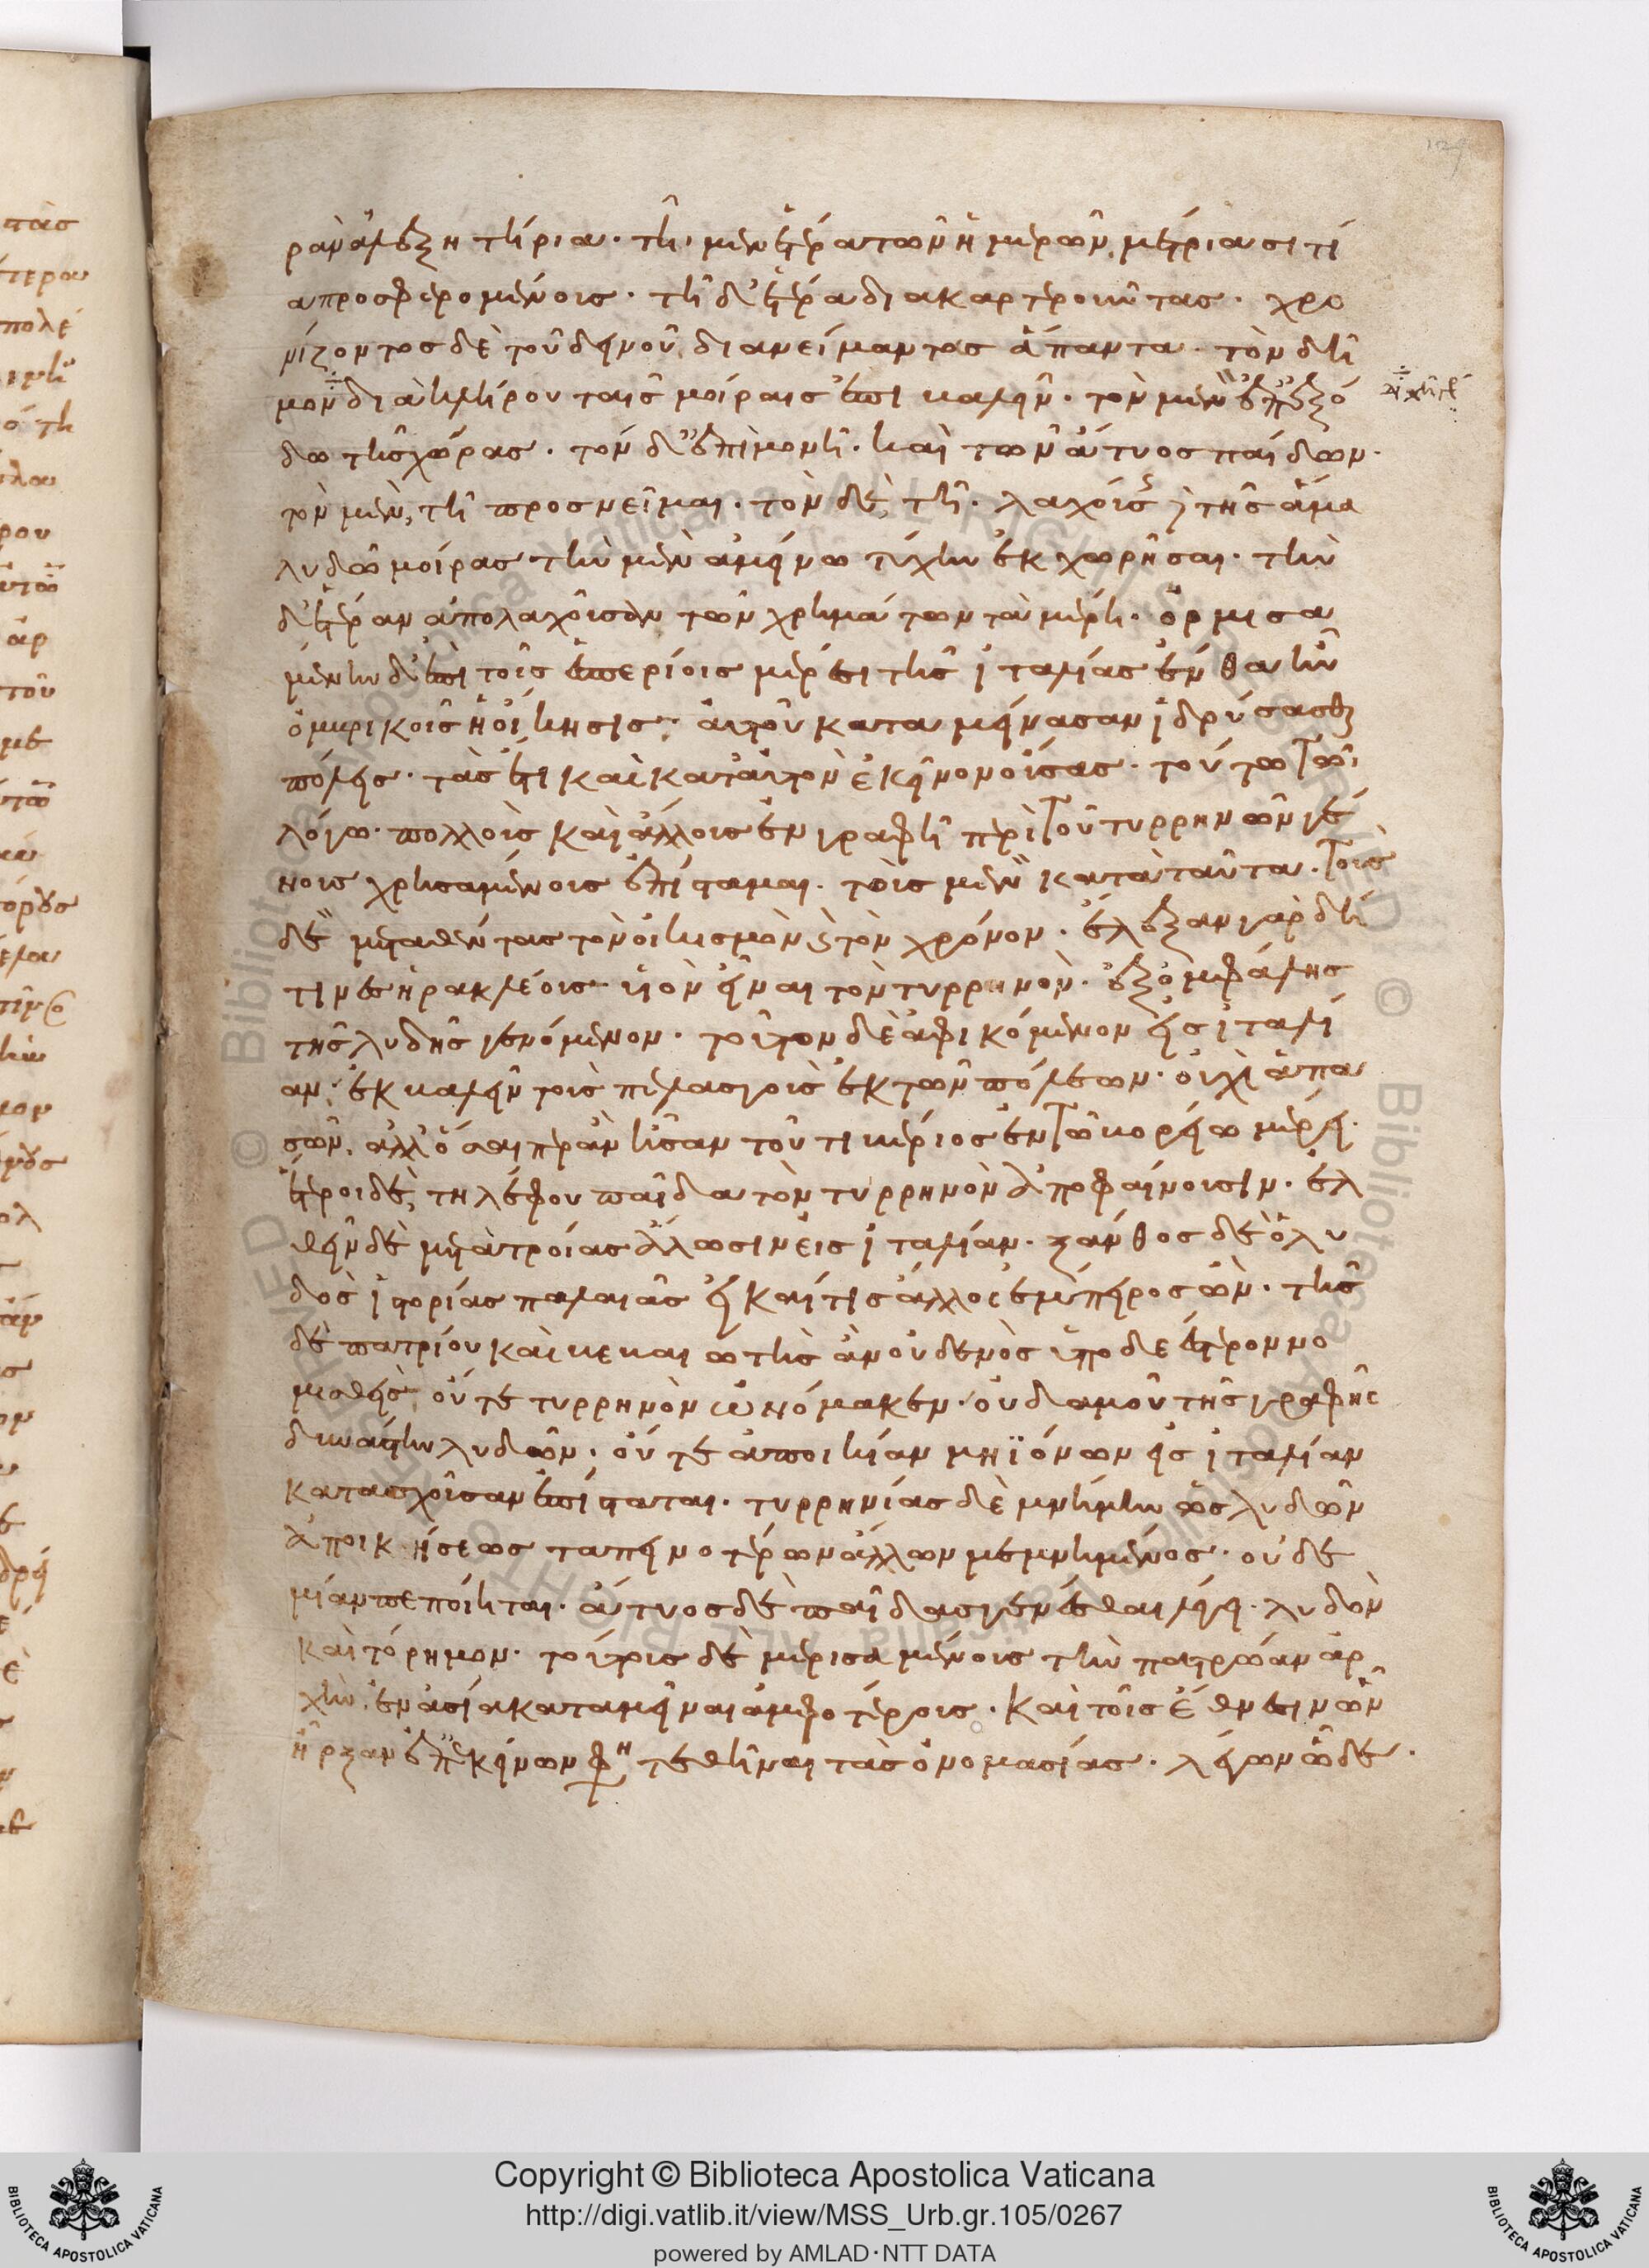 ραν ἀλεξητήρια· τῇ μὲν ἑτέρα τῶν ἡμερῶν μέτρια σιτί
α προσφερομένους· τῇ δ' ἑτέρα διακαρτεροῦντας· χρο
νίζοντος δὲ τοῦ δεινοῦ διανείμαντας ἅπαντα τὸν δῆ
μον διχῆ κλήρους ταῖς μοίραις ἐπιβαλεῖν· τὸν μὲν ἐπ' ἐξό
δω τῆς χώρας· τὸν δ' ἐπὶ μονῇ· καὶ τῶν ἄτυος παίδων
τὸν μὲν τῇ προσνεῖμαι· τὸν δὲ τῇ· λαχούσης τῆς ἅμα
λυδῶ μοίρας τὴν μὲν ἀμείνω τύχην ἐκχωρῆσαι· τὴν
δ' ἑτέραν ἀπολαχοῦσαν τῶν χρημάτων τὰ μέρη· ὁρμισα
μένην δ' ἐπὶ τοῖς ἑσπερίοις μέρεσι τῆς ἰταλίας ἔνθα ἦν
ὀμβρικοῖς ἡ οἴκησις· αὐτοῦ καταμείνασαν ἱδρύσασθαι
πόλεις· τὰς ἔτι καὶ κατ' αὐτὸν ἐκεῖνον οὔσας· τούτω τῶι
λόγω πολλοὺς καὶ ἄλλους συγγραφῇ περὶ τοῦ τυρρηνῶν γέ
νους χρησαμένους ἐπίσταμαι· τοὺς μὲν κατὰ ταῦτα· τοὺς
δὲ μεταθέντας τὸν οἰκισμὸν καὶ τὸν χρόνον· ἔλεξαν γὰρ δή
τινες ἡρακλέους υἱὸν εἶναι τὸν τυρρηνὸν· ἐξ ὀμφάλης
τῆς λυδῆς γενόμενον· τοῦτον δὲ ἀφικόμενον εἰς ἰταλί
αν ἐκβαλεῖν τοὺς πελασγοὺς ἐκ τῶν πόλεων· οὐχὶ ἁπα
σῶν, ἀλλ' ὅσαι πέραν ἦσαν τοῦ τιβέριος ἐν τῶ βορείω μέρει·
ἕτεροι δὲ, τηλέφου παῖδα τὸν τυρρηνὸν ἀποφαίνουσιν· ἐλ
θεῖν δὲ μετὰ τροίας ἅλωσιν εἰς ἰταλίαν· ξάνθος δὲ ὁ λυ
δὸς ἱστορίας παλαιᾶς εἰ καί τις ἄλλος ἔμπειρος ὢν· τῆς
δὲ πατρίου καὶ βεβαιωτὴς ἂν οὐδενὸς ὑποδεέστερον νο
μισθεὶς οὔτε τυρρηνὸν ὠνόμακεν οὐδαμοῦ τῆς γραφῆς
δυνάστην λυδῶν· οὔτε ἀποικίαν μηϊόνων εἰς ἰταλίαν
κατασχοῦσαν ἐπίσταται· τυρρηνίας δὲ μνήμην ὡς λυδῶν
ἀποικήσεως ταπεινοτέρων ἄλλων μεμνημένος· οὐδε
μίαν πεποίηται· ἄτυος δὲ παῖδας γενέσθαι λέγει· λυδὸν
καὶ τόρηβον· τούτους δὲ μερισαμένους τὴν πατρώαν ἀρ
χὴν ἐν ἀσία καταμεῖναι ἀμφοτέρους· καὶ τοῖς ἔθνεσιν ὧν
ἦρξαν ἐπ' ἐκείνων φη τεθῆναι τὰς ὀνομασίας· λέγων ὧδε·